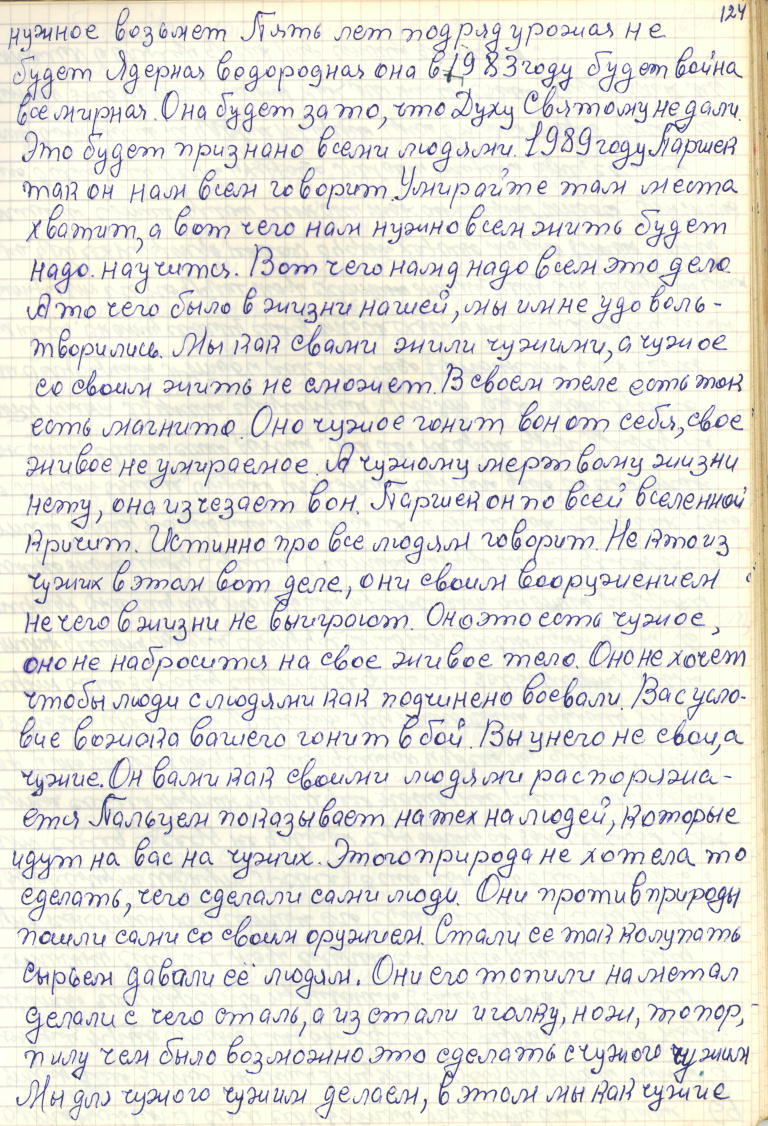 124
нужное возьмет Пять лет подряд урожая не
будет Ядерная водородная она в 1983 году будет война
всемирная. Она будет за то, что Духу Святому не дали.
Это будет признано всеми людями. 1989 году Паршек
так он нам всем говорит. Умирайте там места
хватит, а вот чего нам нужно всем жить будет
надо. научится. Вот чего нам д надо всем это дело
А то чего было в жизни нашей, мы им не удоволь-
творились. Мы как свами жили чужими, а чужое
со своим жить не сможет. В своем теле есть ток
есть магнито. Оно чужое гонит вон от себя, свое
живое не умираемое. А чужому мертвому жизни
нету, она изчезает вон. Паршек он по всей вселенной
кричит. Истинно про все людям говорит. Не кто из
чужих в этом вот деле, они своим вооружением
не чего в жизни не выиграют. Оно это есть чужое,
оно не набросится на свое живое тело. Оно не хочет
чтобы люди с людями как подчинено воевали. Вас усло-
вие вожака вашего гонит в бой. Вы у него не свои, а
чужие. Он вами как своими людями распоряжа-
ется Пальцем показывает на тех на людей, которые
идут на вас на чужих. Этого природа не хотела то
сделать, чего сделали сами люди. Они против природы
пошли сами со своим оружием. Стали ее так колупать
сырьем давали её людям. Они его топили на метал
делали с чего сталь, а из стали иголку, нож, топор,
пилу чем было возможно это сделать с чужого чужим
Мы для чужого чужим делаем, в этом мы как чужие